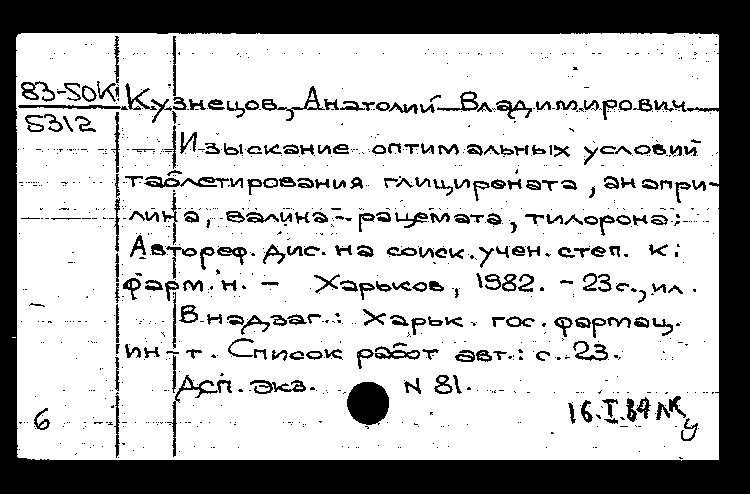 83-50К Кузнецов, Анатолий Владимирович
5312
Изыскание оптимальных условий
таблетирования глицироната, анапри-
лина, валина-рацемата, тилорона:
Автореф. дис. на соиск. учен. степ. к.
фарм. н. - Харьков, 1982. - 23 с., ил.
В надзаг.: Харьк. гос. фармац.
ин-т. Список работ авт.: с. 23.
Дсп. экз. N 81.
6
16.I.84